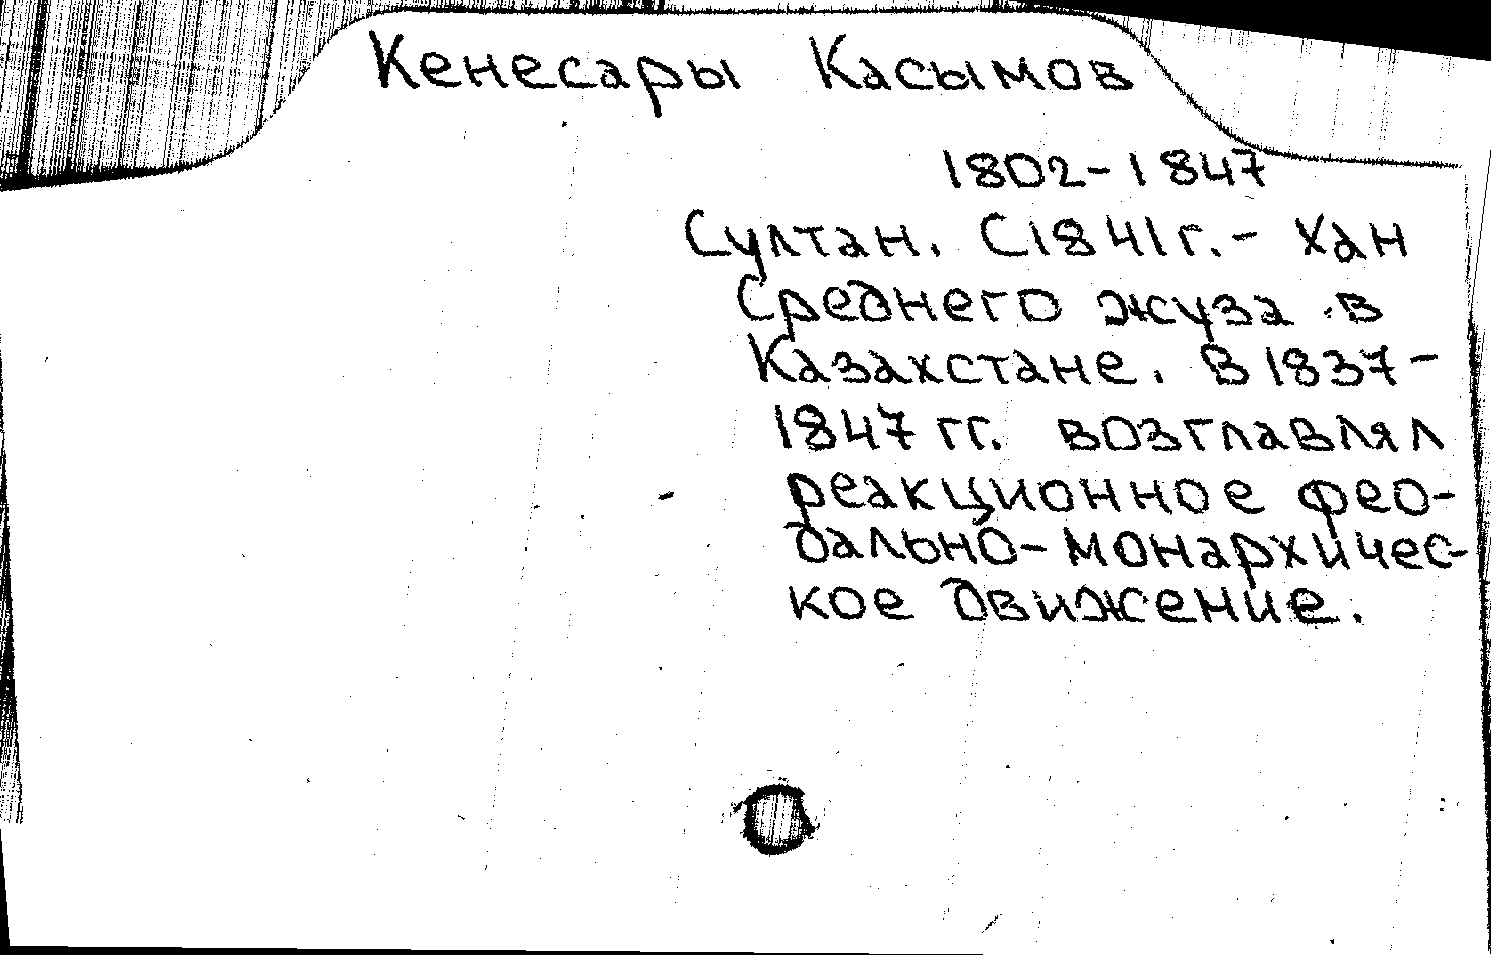 Кенесары Касымов
1802-1847
Султан. С 1841 г. - хан
Среднего жуза в
Казахстане. В 1837-
1847 гг. возглавлял
реакционное фео-
дально-монархичес-
кое движение.